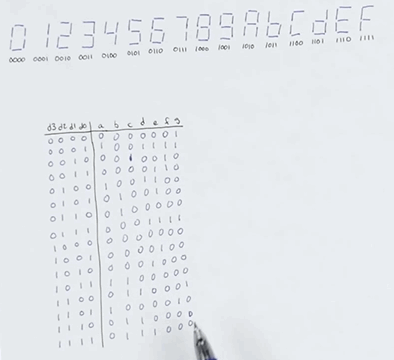 0 1 2 3 4 5 6 7 8 9 A b C d E F
0000 0001 0010 0011 0100 0101 0110 0111 1000 1001 1010 1011 1100 1101 1110 1111
d3 d2 d1 d0 a b c d e f g
0 0 0 0 0 0 0 0 0 0 1
0 0 0 1 1 0 0 1 1 1 1
0 0 1 0 0 0 1 0 0 1 0
0 0 1 1 0 0 0 0 1 1 0
0 1 0 0 1 0 0 1 1 0 0
0 1 0 1 0 1 0 0 1 0 0
0 1 1 0 0 1 0 0 0 0 0
0 1 1 1 0 0 0 1 1 1 1
1 0 0 0 0 0 0 0 0 0 0
1 0 0 1 0 0 0 0 1 0 0
1 0 1 0 0 0 0 1 0 0 0
1 0 1 1 1 1 0 0 0 0 0
1 1 0 0 0 1 1 0 0 0 1
1 1 0 1 1 0 0 0 0 1 0
1 1 1 0 0 1 1 0 0 0 0
1 1 1 1 0 1 1 1 0 0 0